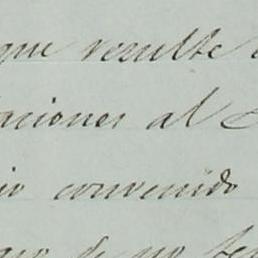 que resulte
aciones al
io convenido
de no